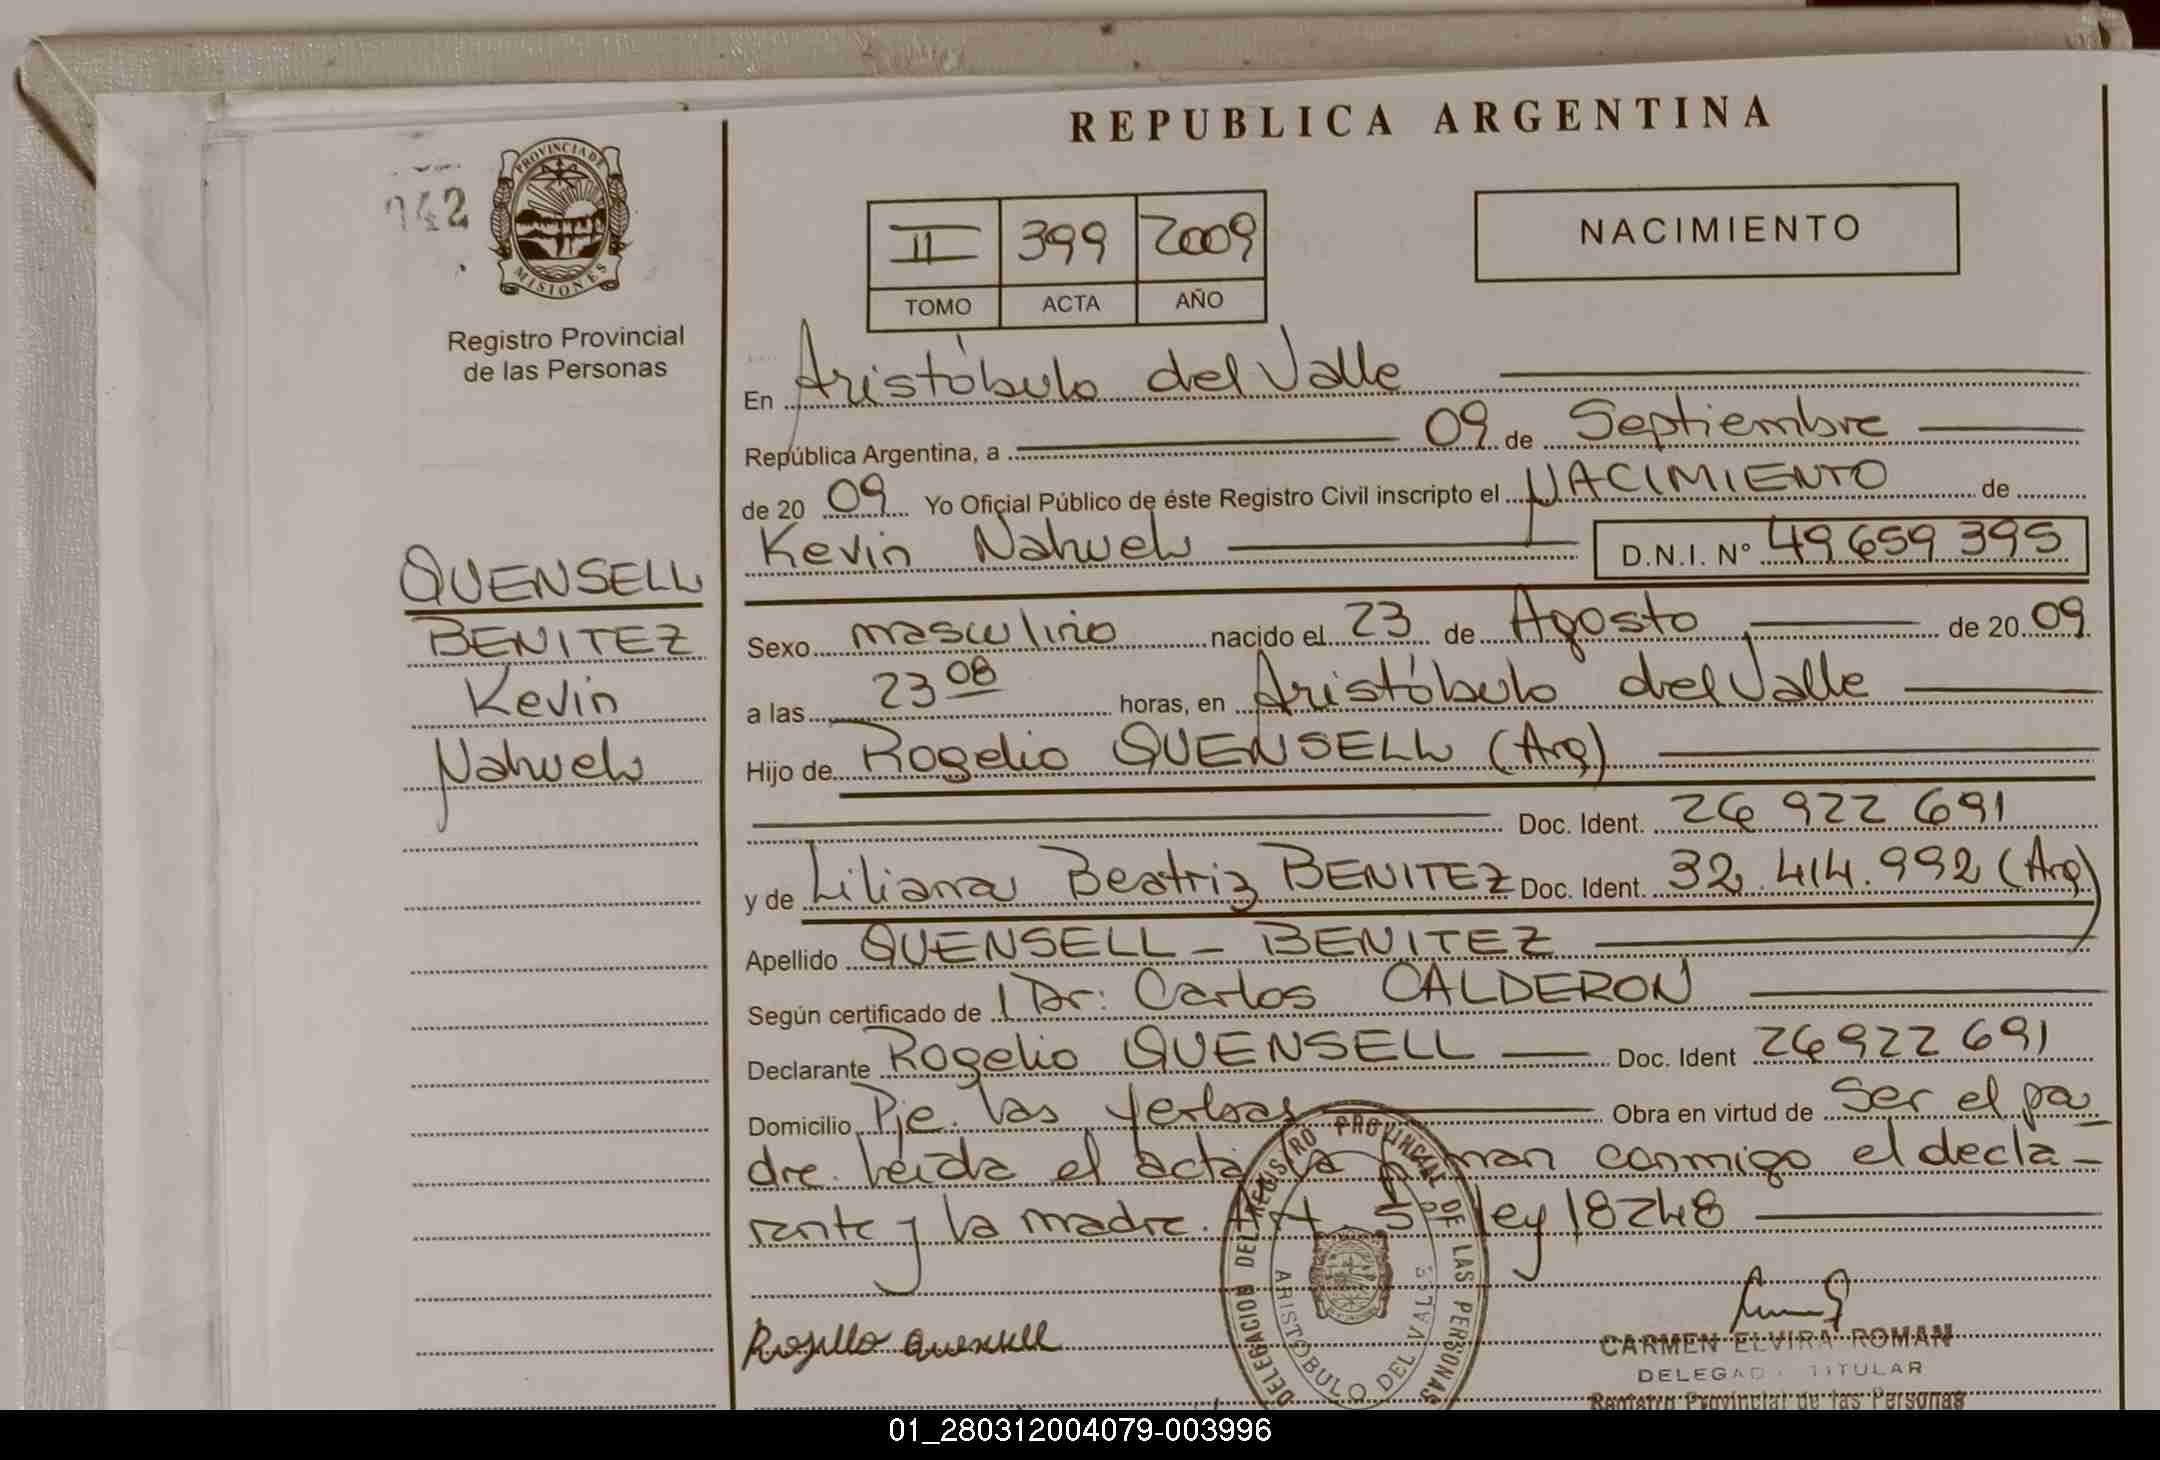 REPUBLICA ARGENTINA
PROVINCIA DE
MISIONES
Registro Provincial
de las Personas
II 399 2009
TOMO ACTA AÑO
NACIMIENTO
En Aristóbulo del Valle
República Argentina, a 09 de Septiembre
de 20 09 Yo Oficial Público de éste Registro Civil inscripto el NACIMIENTO de
Kevin Nahuel D.N.I. N° 49 659 395
QUENSELL
BENITEZ
Kevin
Nahuel
Sexo masculino nacido el 23 de Agosto de 20 09
a las 23 08 horas, en Aristóbulo del Valle
Hijo de Rogelio QUENSELL (Arg)
Doc. Ident. 26 922 691
y de Liliana Beatriz BENITEZ Doc. Ident. 32.414.992 (Arg)
Apellido QUENSELL - BENITEZ
Según certificado de Dr: Carlos CALDERON
Declarante Rogelio QUENSELL Doc. Ident 26 922 691
Domicilio Pje. las Yerbas Obra en virtud de ser el pa
dre. Leída el acta la man conmigo el decla-
rante y la madre. Art. 5 ley 18248
DELEGACION DEL REGISTRO PROVINCIAL DE LAS PERSONAS
ARISTOBULO DEL VALLE
CARMEN ELVIRA ROMAN
TITULAR
Registro Provincial de las Personas
01_280312004079-003996